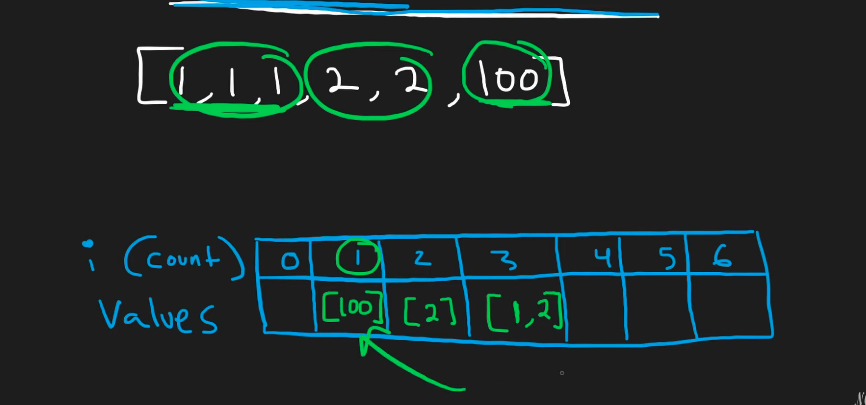 [1,1,1,2,2,100]
i (count) 0 1 2 3 4 5 6
Values [100] [2] [1,2]